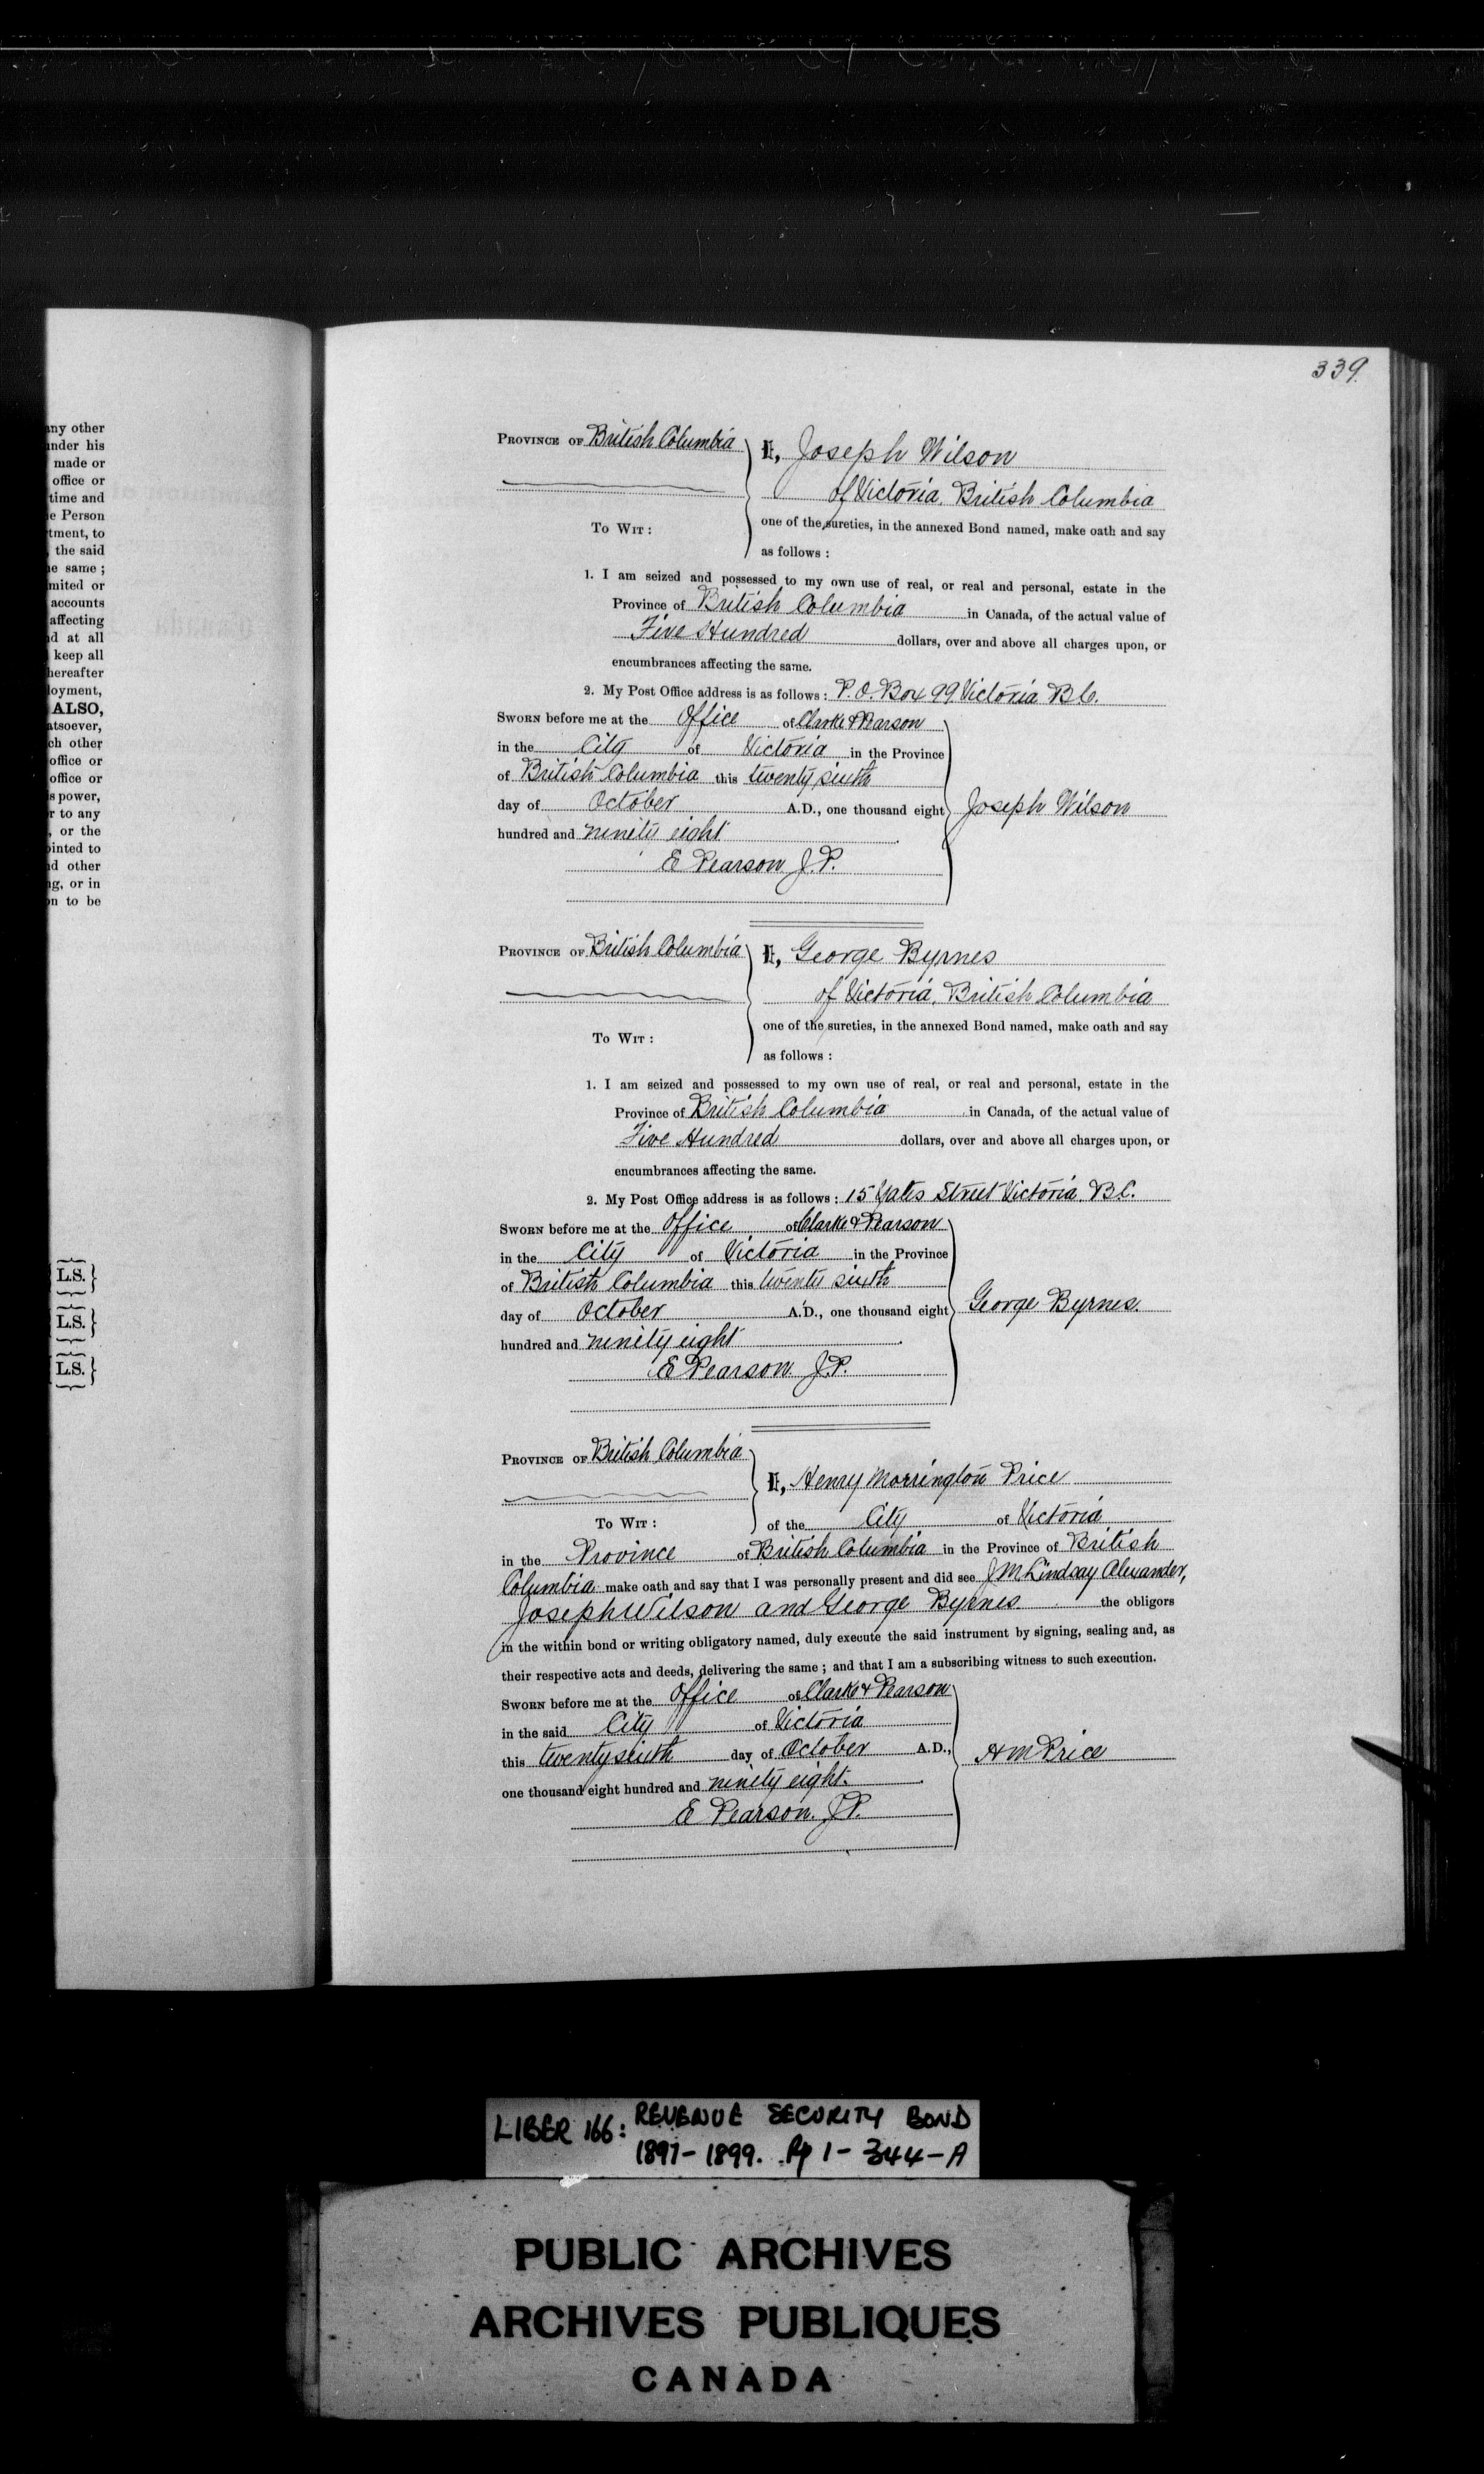 339.
any other
under his
made or
office or
time and
e Person
tment, to
the said
e same ;
mited or
accounts
affecting
d at all
keep all
hereafter
loyment,
ALSO,
atsoever,
ch other
office or
office or
s power,
r to any
, or the
ointed to
d other
ng, or in
on to be
L.S.
L.S.
L.S.
PROVINCE OF British Columbia
I, Joseph Wilson
of Victoria, British Columbia
TO WIT :
one of the sureties, in the annexed Bond named, make oath and say
as follows :
1. I am seized and possessed to my own use of real, or real and personal, estate in the
Province of British Columbia in Canada, of the actual value of
Five Hundred dollars, over and above all charges upon, or
encumbrances affecting the same.
2. My Post Office address is as follows : P. O. Box 99 Victoria B.C.
SWORN before me at the Office of Clarke & Pearson
in the City of Victoria in the Province
of British Columbia this twenty sixth
day of October A.D., one thousand eight
hundred and ninety eight
E Pearson J.P.
Joseph Wilson
PROVINCE OF British Columbia
I, George Byrnes
of Victoria, British Columbia
TO WIT :
one of the sureties, in the annexed Bond named, make oath and say
as follows :
1. I am seized and possessed to my own use of real, or real and personal, estate in the
Province of British Columbia in Canada, of the actual value of
Five Hundred dollars, over and above all charges upon, or
encumbrances affecting the same.
2. My Post Office address is as follows : 15 Yates Street Victoria. B.C.
SWORN before me at the Office of Clarke & Pearson
in the City of Victoria in the Province
of British Columbia this twenty sixth
day of October A.D., one thousand eight
hundred and ninety eight
E Pearson J.P.
George Byrnes.
PROVINCE OF British Columbia
I, Henry Morrington Price
TO WIT :
of the City of Victoria
in the Province of British Columbia in the Province of British
Columbia make oath and say that I was personally present and did see J M Lindsay Alexander,
Joseph Wilson and George Byrnes the obligors
in the within bond or writing obligatory named, duly execute the said instrument by signing, sealing and, as
their respective acts and deeds, delivering the same ; and that I am a subscribing witness to such execution.
SWORN before me at the Office of Clarke & Pearson
in the said City of Victoria
this twenty sixth day of October A.D.,
one thousand eight hundred and ninety eight.
E Pearson. J.P.
H M Price
LIBER 166: REVENUE SECURITY BOND
1897-1899. Pp 1-344-A
PUBLIC ARCHIVES
ARCHIVES PUBLIQUES
CANADA